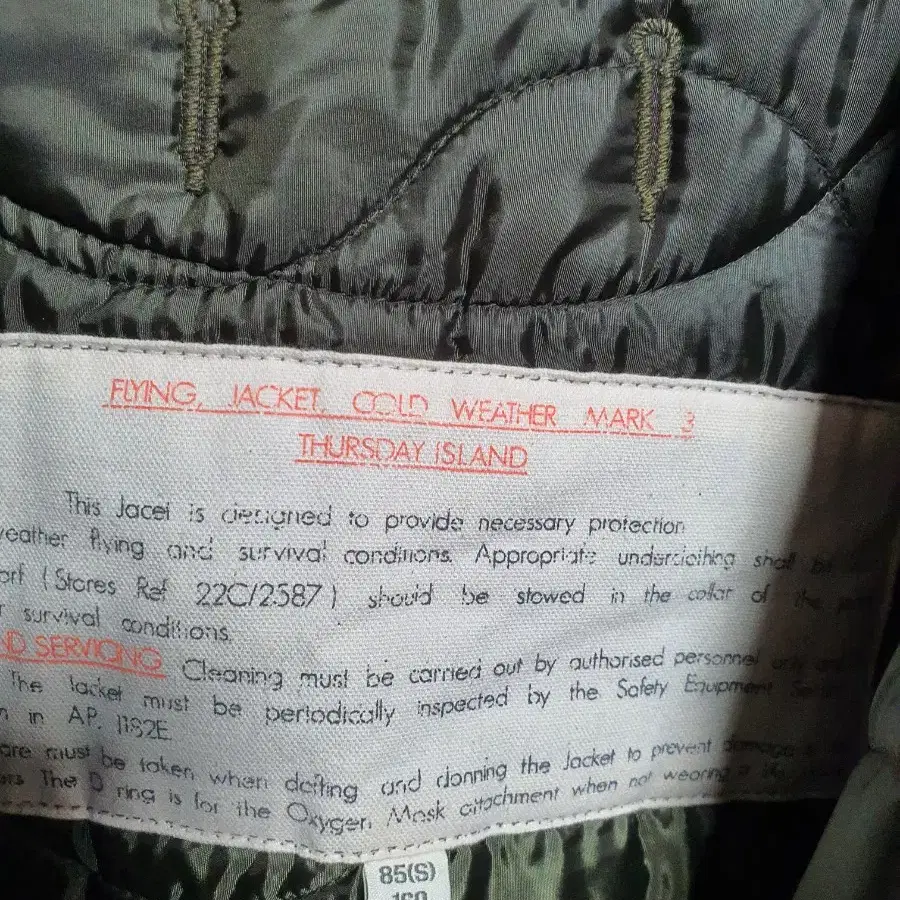 FLYING, JACKET, COLD WEATHER MARK 3
THURSDAY ISLAND
This Jacet is designed to provide necessary protection
weather flying and survival conditions. Appropriate underclothing shall be
arf (Stores Ref 22C/2587) should be stowed in the collar of the
survival conditions.
ND SERVICING Cleaning must be carried out by authorised personnel only and
The Jacket must be periodically inspected by the Safety Equipment
in AP. 1182E
are must be taken when doffing and donning the Jacket to prevent damage
The D ring is for the Oxygen Mask attachment when not wearing a life
85(S)
160